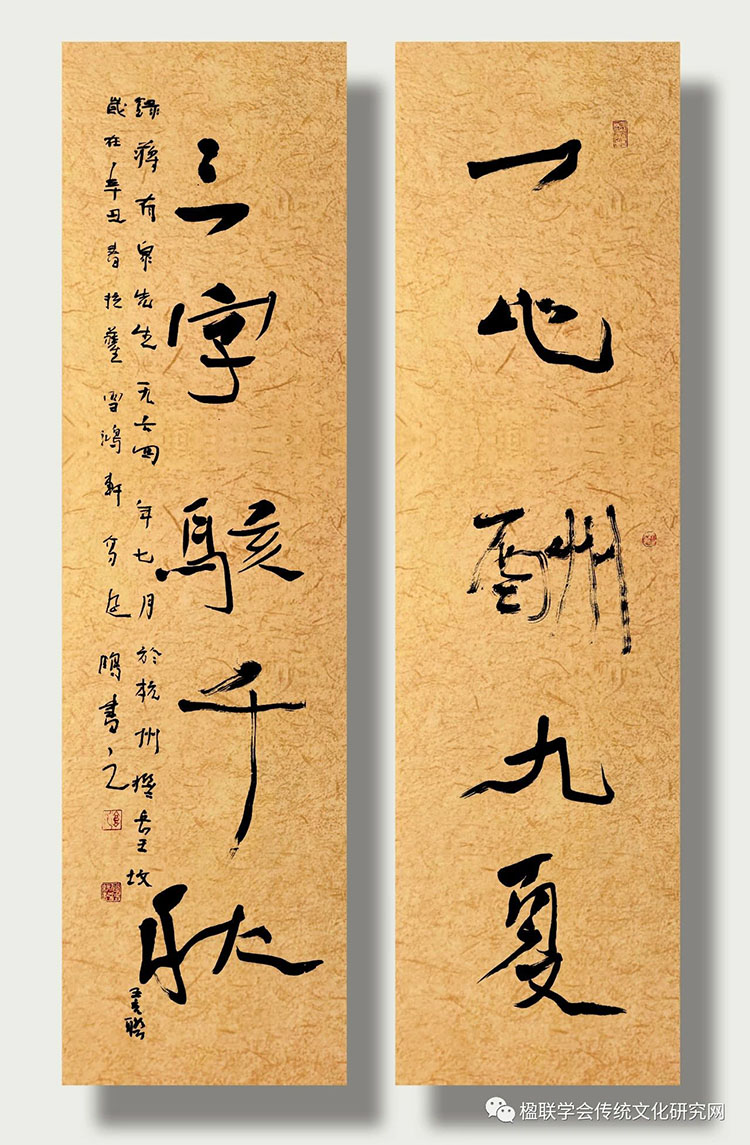 一心酬九夏
三字駭千秋
錄蔣有泉先生一九七四年七月於杭州撰岳王坟五言聯
歲在辛丑春於雪鴻軒書之
楹联学会传统文化研究网